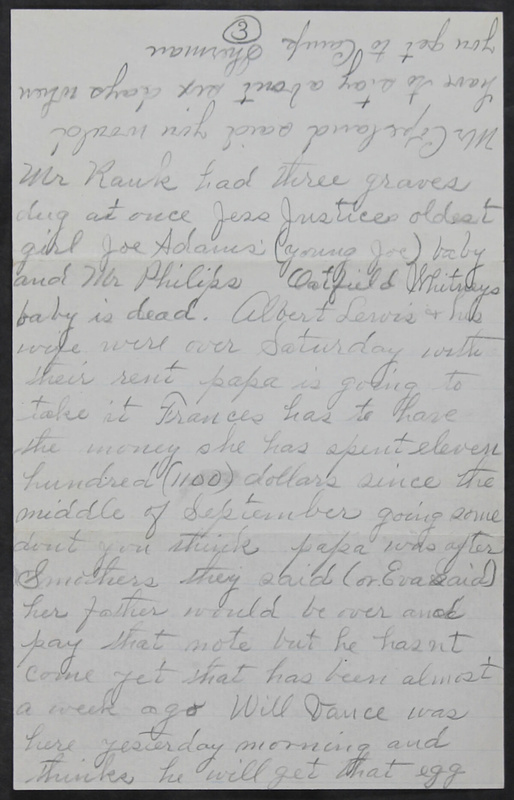 3
Mr Copeland said you would
have to stay about six days when
you get to Camp Sherman
Mr Rauk had three graves
dug at once Jess Justices oldest
girl Joe Adams (young Joe) baby
and Mr Philips Oatfield Whitneys
baby is dead. Albert Lewis & his
wife were over Saturday with
their rent papa is going to
take it Frances has to have
the money she has spent eleven
hundred (1100) dollars since the
middle of September going some
dont you think papa was after
Smothers they said (or Eva said)
her father would be over and
pay that note but he hasnt
come yet that has been almost
a week ago Will Vance was
here yesterday morning and
thinks he will get that egg